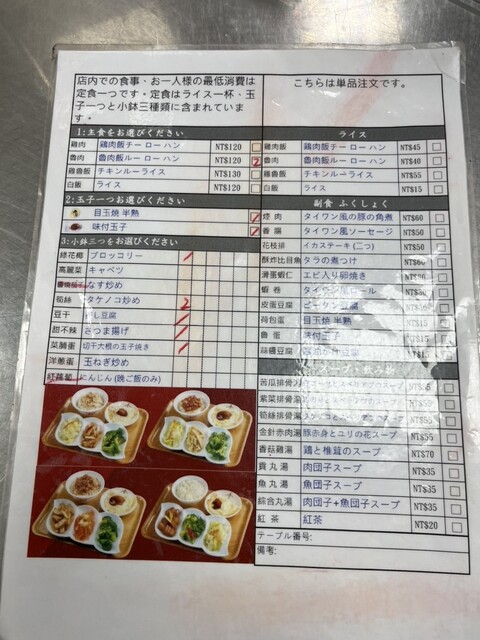 店内での食事、お一人様の最低消費は
定食一つです。定食はライス一杯、玉
子一つと小鉢三種類に含まれていま
す。
こちらは単品注文です。
1:主食をお選びください
雞肉 鶏肉飯チー ロー ハン NT$120
魯肉 魯肉飯ルー ロー ハン NT$120 2
雞魯飯 チキンルーライス NT$130
白飯 ライス NT$120
2:玉子一つお選びください
目玉焼 半熟
味付玉子
3:小鉢三つをお選びください
綠花椰 ブロッコリー
高麗菜 キャベツ
なす炒め
筍絲 タケノコ炒め 2
豆干 豆腐
甜不辣 さつま揚げ
菜脯蛋 切干大根の玉子焼き
洋蔥蛋 玉ねぎ炒め
紅蘿蔔 にんじん (晩ご飯のみ)
ライス
雞肉飯 鶏肉飯チー ロー ハン NT$45
魯肉 魯肉飯ルー ロー ハン NT$40
雞魯飯 チキンルーライス NT$55
白飯 ライス NT$15
副食 ふくしょく
焢肉 タイワン風の豚の角煮 NT$60
香腸 タイワン風ソーセージ NT$50
花枝排 イカステーキ(二つ) NT$50
酥炸比目魚 タラの煮つけ
滑蛋蝦仁 エビ入り卵焼き
蝦卷
皮蛋豆腐 ピータン豆腐
荷包蛋 目玉焼 半熟 NT$15
魯蛋 味付玉子
苦瓜排骨
紫菜排骨
筍絲排骨
金針赤肉湯 豚赤身とユリの花スープ NT$55
香菇雞湯 鶏と椎茸のスープ NT$70
貢丸湯 肉団子スープ NT$35
魚丸湯 魚団子スープ NT$35
綜合丸湯 肉団子+魚団子スープ NT$35
紅茶 紅茶 NT$20
テーブル番号:
備考: